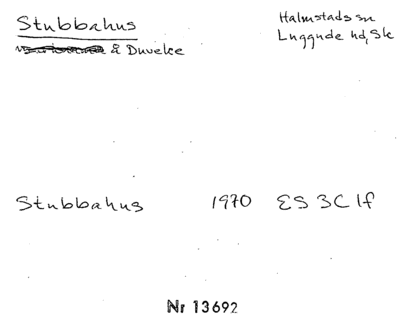 Stubbahus
Halmstads sn
å Duveke
Luggude hd, Sk
Stubbahus 1970 ES 3C 1f
Nr 13692